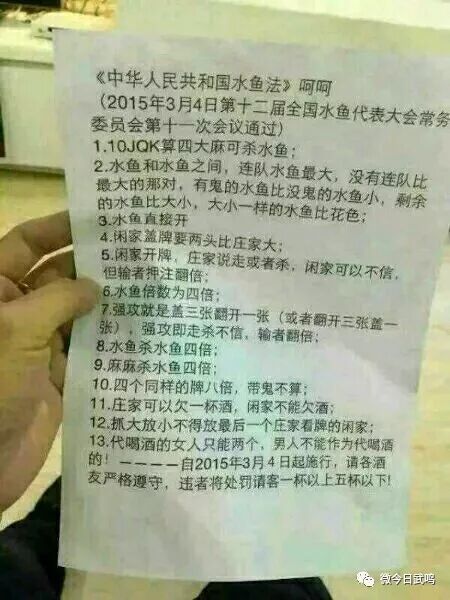 《中华人民共和国水鱼法》呵呵
（2015年3月4日第十二届全国水鱼代表大会常务
委员会第十一次会议通过）
1.10JQK算四大麻可杀水鱼；
2.水鱼和水鱼之间，连队水鱼最大，没有连队比
最大的那对，有鬼的水鱼比没鬼的水鱼小，剩余
的水鱼比大小，大小一样的水鱼比花色；
3.水鱼直接开
4.闲家盖牌要两头比庄家大；
5.闲家开牌，庄家说走或者杀，闲家可以不信，
但输者押注翻倍；
6.水鱼倍数为四倍；
7.强攻就是盖三张翻开一张（或者翻开三张盖一
张），强攻即走杀不信，输者翻倍；
8.水鱼杀水鱼四倍；
9.麻麻杀水鱼四倍；
10.四个同样的牌八倍，带鬼不算；
11.庄家可以欠一杯酒，闲家不能欠酒；
12.抓大放小不得放最后一个庄家看牌的闲家；
13.代喝酒的女人只能两个，男人不能作为代喝酒
的！－－－－自2015年3月4日起施行，请各酒
友严格遵守，违者将处罚请客一杯以上五杯以下!
微今日武鸣